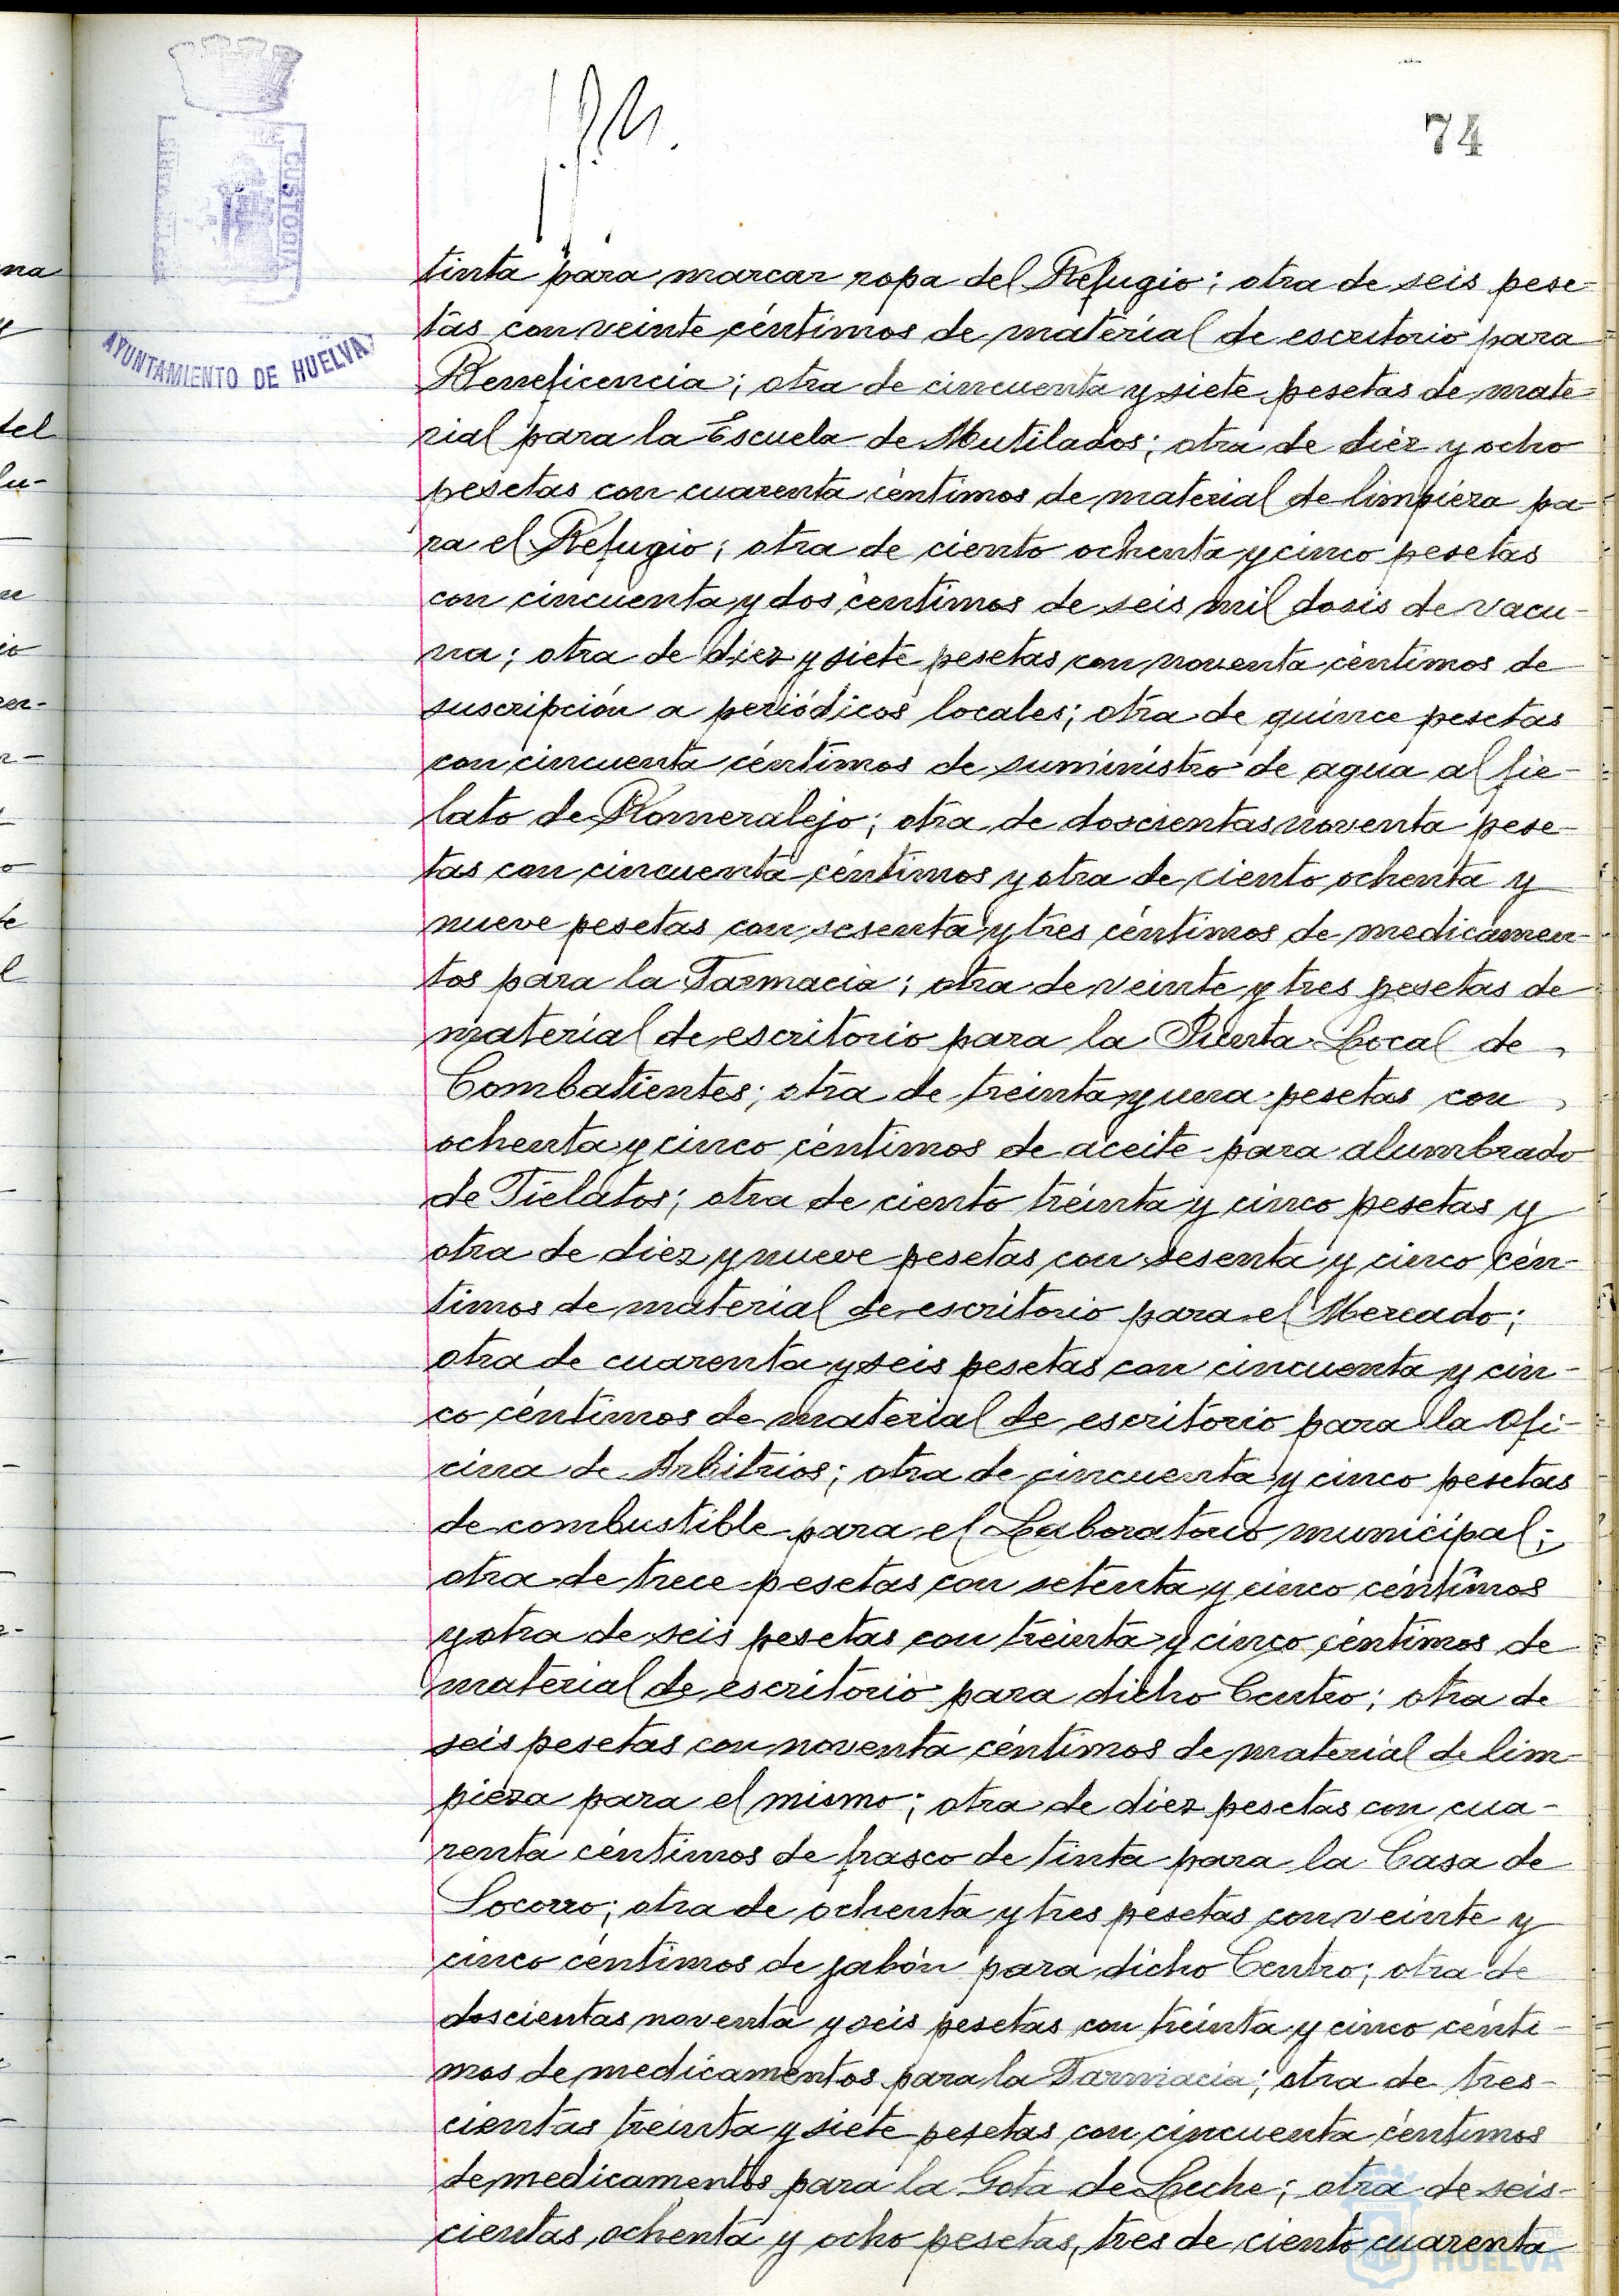 74
CUSTODIT
AYUNTAMIENTO DE HUELVA
tinta para marcar ropa del Refugio; otra de seis pese-
tas con veinte céntimos de material de escritorio para
Beneficencia; otra de cincuenta y siete pesetas de mate-
rial para la Escuela de Mutilados; otra de diez y ocho
pesetas con cuarenta céntimos de material de limpieza pa-
ra el Refugio; otra de ciento ochenta y cinco pesetas
con cincuenta y dos céntimos de seis mil dosis de vacu-
na; otra de diez y siete pesetas con noventa céntimos de
suscripción a periódicos locales; otra de quince pesetas
con cincuenta céntimos de suministro de agua al fie-
lato de Romeralejo; otra de doscientas noventa pese-
tas con cincuenta céntimos y otra de ciento ochenta y
nueve pesetas con sesenta y tres céntimos de medicamen-
tos para la Farmacia; otra de veinte y tres pesetas de
material de escritorio para la Junta Local de
Combatientes; otra de treinta y una pesetas con
ochenta y cinco céntimos de aceite para alumbrado
de Fielatos; otra de ciento treinta y cinco pesetas y
otra de diez y nueve pesetas con sesenta y cinco cén-
timos de material de escritorio para el Mercado;
otra de cuarenta y seis pesetas con cincuenta y cin-
co céntimos de material de escritorio para la Ofi-
cina de Arbitrios; otra de cincuenta y cinco pesetas
de combustible para el Laboratorio municipal;
otra de trece pesetas con setenta y cinco céntimos
y otra de seis pesetas con treinta y cinco céntimos de
material de escritorio para dicho Centro; otra de
seis pesetas con noventa céntimos de material de lim-
pieza para el mismo; otra de diez pesetas con cua-
renta céntimos de frasco de tinta para la Casa de
Socorro; otra de ochenta y tres pesetas con veinte y
cinco céntimos de jabón para dicho Centro; otra de
doscientas noventa y seis pesetas con treinta y cinco cénti-
mos de medicamentos para la Farmacia; otra de tres-
cientas treinta y siete pesetas con cincuenta céntimos
de medicamentos para la Gota de Leche; otra de seis-
cientas ochenta y ocho pesetas, tres de ciento cuarenta
HUELVA